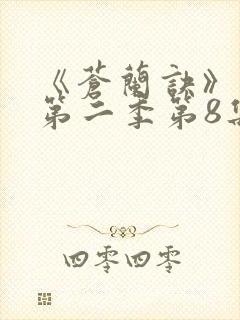 《蒼蘭訣》
第二季第8集
四零四零